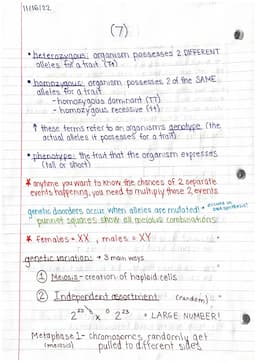 11/16/22
(7)
• heterozygous: organism possesses 2 DIFFERENT
alleles for a trait (Tt)
• homozygous: organism possesses 2 of the SAME
alleles for a trait
- homozygous dominant (TT)
- homozygous recessive (tt)
↑ these terms refer to an organisms genotype (the
actual alleles it possesses for a trait)
• phenotype: the trait that the organism expresses
(tall or short)
* anytime you want to know the chances of 2 separate
events happening, you need to multiply those 2 events
genetic disorders occur when alleles are mutated!
punnet squares show all possible combinations!
* females = XX, males = XY
genetic variation: → 3 main ways
① Meiosis - creation of haploid cells
② Independent assortment (random)
2²³ x 2²³ = LARGE NUMBER!
Metaphase 1 - chromosomes randomly get
(meiosis) pulled to different sides